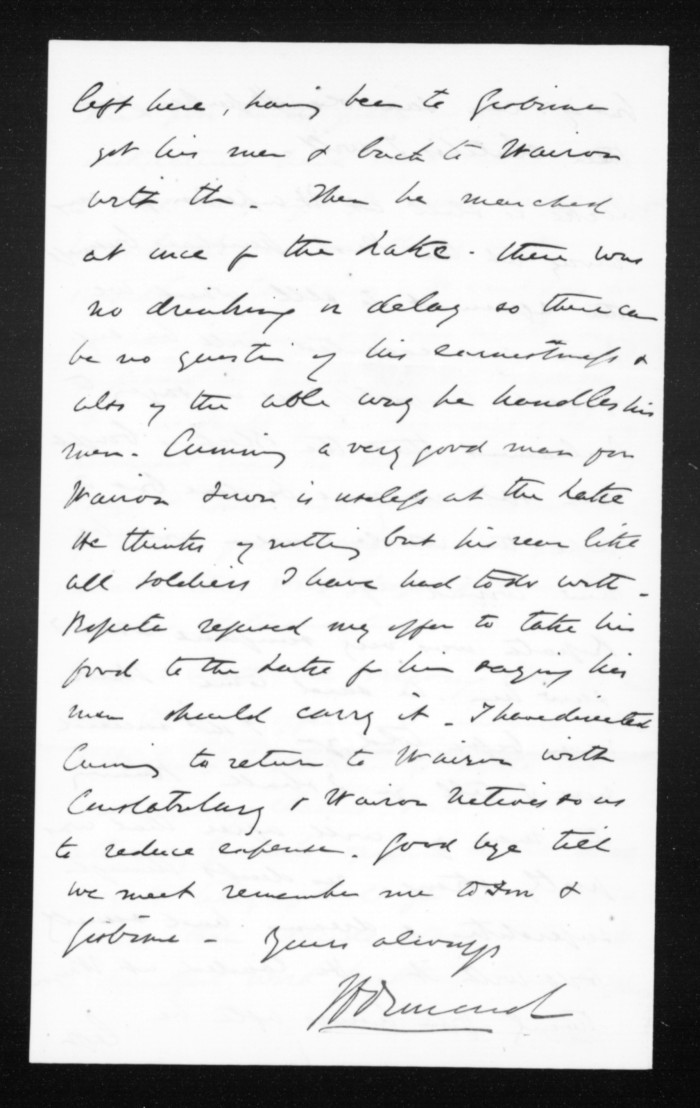 left here, having been to Gisborne
got his men & back to Wairoa
with th. Then he marched
at once for the Lake. there was
no drinking or delay so there can
be no question of his earnestness &
also of the able way he handles his
men. Cuming a very good man for
Wairoa is useless at the Lake
He thinks of nothing but his rear like
all soldiers I have had to do with -
Ropata refused my offer to take his
food to the Lake for him saying his
men should carry it - I have directed
Cuming to return to Wairoa with
Constabulary & Wairoa Natives so as
to reduce expense. Good bye till
we meet remember me to &
Gisborne - Yours always
JDOrmond